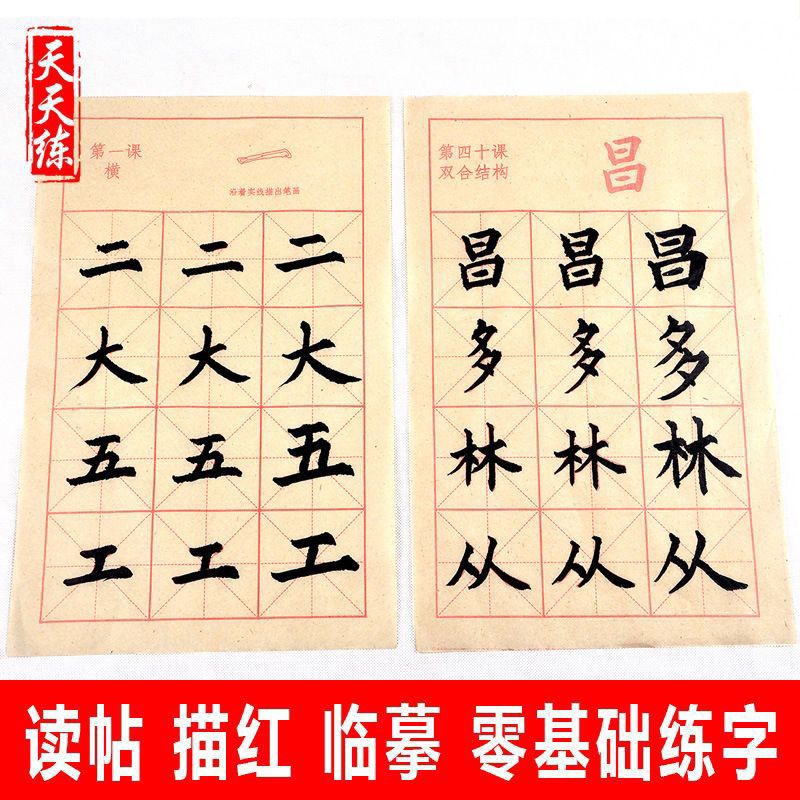 天天练
第一课
横
一
沿着实线描出笔画
二 二 二
大 大 大
五 五 五
工 工 工
第四十课
双合结构
昌
昌 昌 昌
多 多 多
林 林 林
从 从 从
读帖 描红 临摹 零基础练字